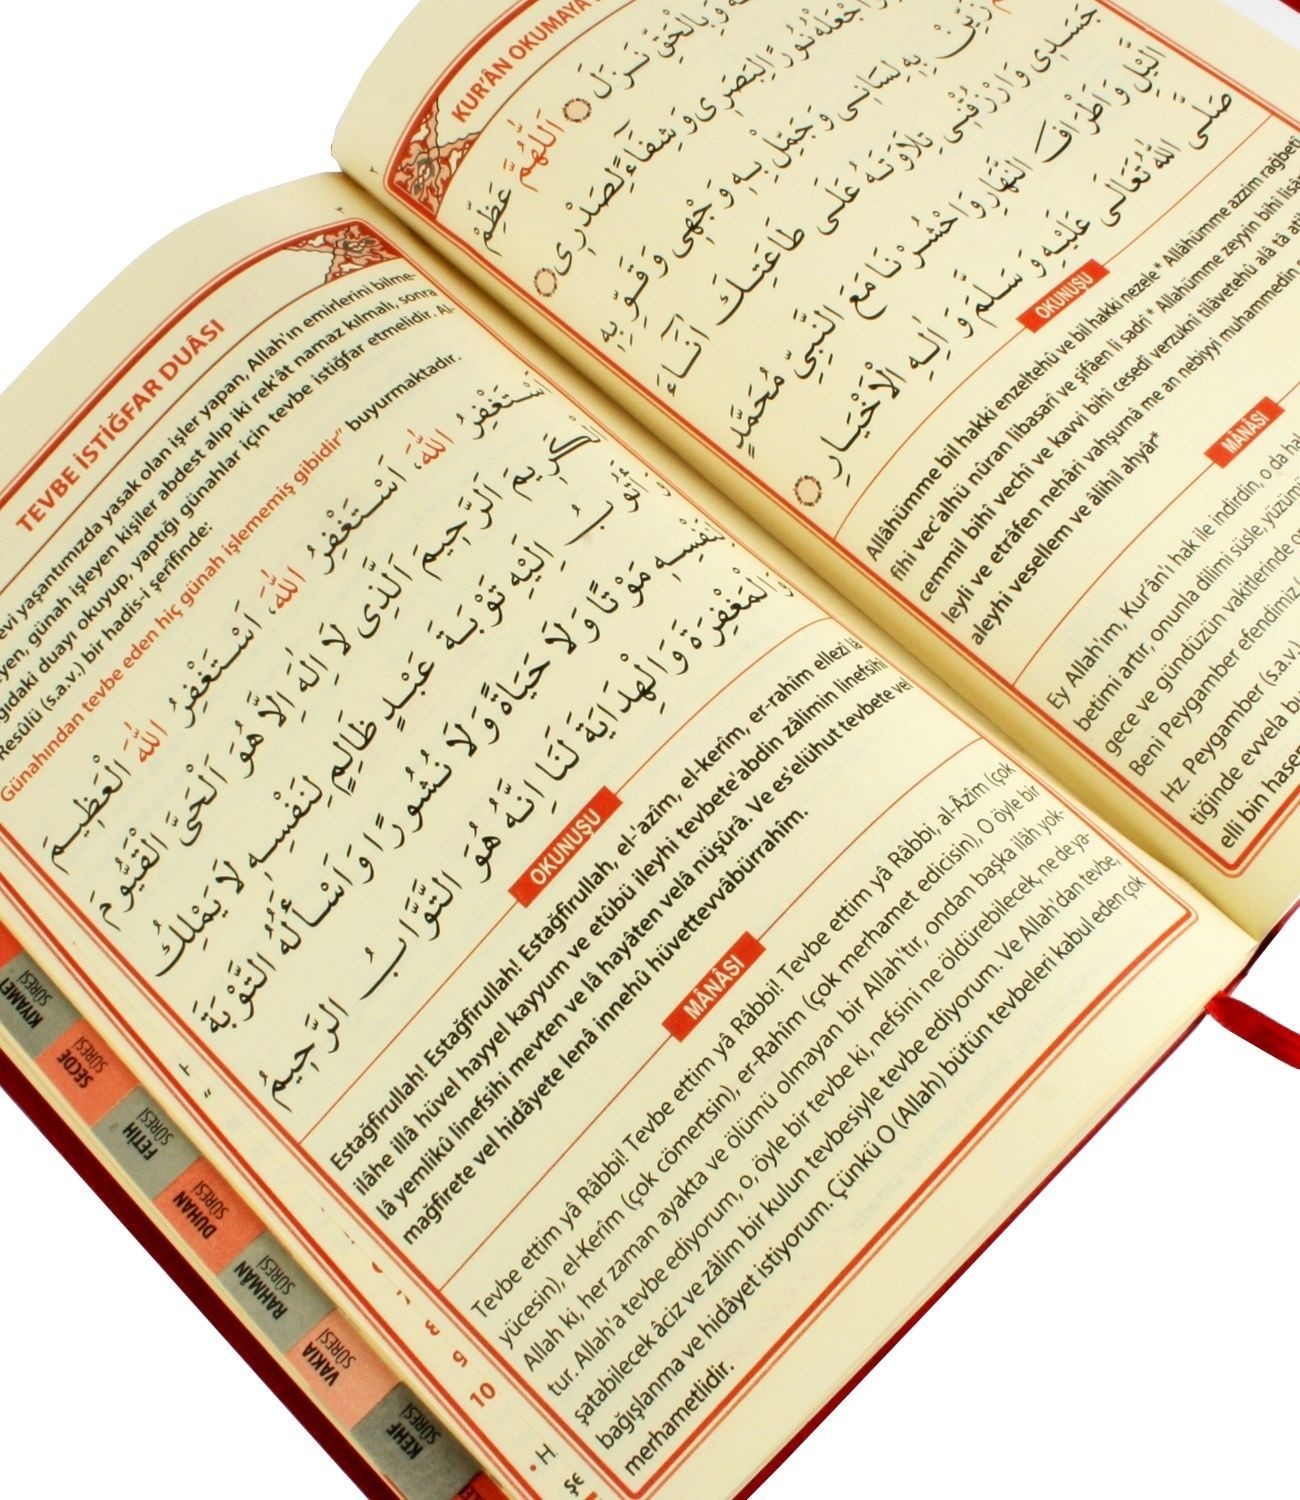 TEVBE İSTİĞFAR DUÂSI
evi yaşantımızda yasak olan işler yapan, Allah'ın emirlerini bilme-
yen, günah işleyen kişiler abdest alıp iki rek'ât namaz kılmalı, sonra
ğıdaki duayı okuyup, yaptığı günahlar için tevbe istiğfar etmelidir. Al-
Resûlü (s.a.v.) bir hadis-i şerifinde:
Günahından tevbe eden hiç günah işlememiş gibidir" buyurmaktadır.
اَسْتَغْفِرُ اللّٰهَ، اَسْتَغْفِرُ اللّٰهَ، اَسْتَغْفِرُ اللّٰهَ الْعَظِيمَ
الْكَرِيمَ اَلرَّحِيمَ اَلَّذِى لَا اِلٰهَ اِلَّا هُوَ اَلْحَىَّ الْقَيُّومَ
وَاَتُوبُ اِلَيْهِ تَوْبَةَ عَبْدٍ ظَالِمٍ لِنَفْسِهِ لَا يَمْلِكُ
لِنَفْسِهِ مَوْتًا وَلَا حَيَاةً وَلَا نُشُورًا وَاَسْأَلُهُ التَّوْبَةَ
وَالْمَغْفِرَةَ وَالْهِدَايَةَ لَنَا اِنَّهُ هُوَ التَّوَّابُ الرَّحِيمُ
OKUNUŞU
Estağfirullah! Estağfirullah! Estağfirullah, el-'azîm, el-kerîm, er-rahîm ellezî lâ
ilâhe illâ hüvel hayyel kayyum ve etûbü ileyhi tevbete'abdin zâlimin linefsihi
lâ yemlikû linefsihi mevten ve lâ hayâten velâ nüşûrâ. Ve es'elühut tevbete vel
mağfirete vel hidâyete lenâ innehû hüvettevvâbürrahîm.
MÂNÂSI
Tevbe ettim yâ Râbbi! Tevbe ettim yâ Râbbi! Tevbe ettim yâ Râbbi, al-Âzîm (çok
yücesin), el-Kerîm (çok cömertsin), er-Rahîm (çok merhamet edicisin), O öyle bir
Allah ki, her zaman ayakta ve ölümü olmayan bir Allah'tır, ondan başka ilâh yok-
tur. Allah'a tevbe ediyorum, o, öyle bir tevbe ki, nefsini ne öldürebilecek, ne de ya-
şatabilecek âciz ve zâlim bir kulun tevbesiyle tevbe ediyorum. Ve Allah'dan tevbe,
bağışlanma ve hidâyet istiyorum. Çünkü O (Allah) bütün tevbeleri kabul eden çok
merhametlidir.
KIYAMET SÛRESİ
SECDE SÛRESİ
FETİH SÛRESİ
DUHAN SÛRESİ
RAHMÂN SÛRESİ
VAKIA SÛRESİ
KEHF SÛRESİ
9
10
KUR'ÂN OKUMAYA
وَبِالْحَقِّ نَزَلَ اَللّٰهُمَّ عَظِّمْ
وَاجْعَلْهُ نُورًا لِبَصَرِى وَشِفَاءً لِصَدْرِى
زَيِّنْ بِهِ لِسَانِى وَجَمِّلْ بِهِ وَجْهِى وَقَوِّ بِهِ
جَسَدِى وَارْزُقْنِى تِلَاوَتَهُ عَلَى طَاعَتِكَ اٰنَاءَ
الَّيْلِ وَاَطْرَافَ النَّهَارِ وَاحْشُرْنَا مَعَ النَّبِىِّ مُحَمَّدٍ
صَلَّى اللّٰهُ تَعَالَى عَلَيْهِ وَسَلَّمَ وَاٰلِهِ الْاَخْيَارِ
OKUNUŞU
Allâhümme bil hakki enzeltehû ve bil hakki nezele* Allâhümme azzim rağbetî
fîhi vec'alhü nûran libasarî ve şifâen li sadrî* Allahümme zeyyin bihî lisân
cemmil bihî vechî ve kavvi bihî cesedî verzuknî tilâvetehû alâ tâ
leyli ve etrâfen nehâri vahşurnâ me an nebiyyi muhammedin
aleyhi vesellem ve âlihil ahyâr*
MÂNÂSI
Ey Allah'ım, Kur'ân'ı hak ile indirdin, o da ha
betimi artır, onunla dilimi süsle, yüzümü
gece ve gündüzün vakitlerinde
Beni Peygamber efendimiz
Hz. Peygamber (s.a.v.)
tiğinde evvela
elli bin